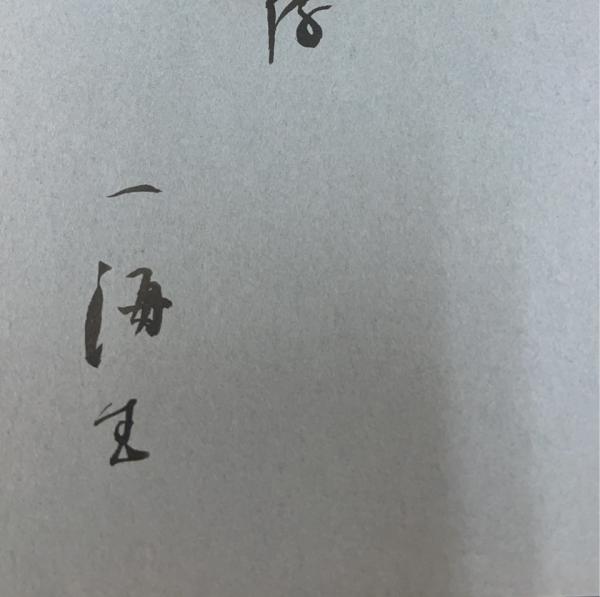 一海生